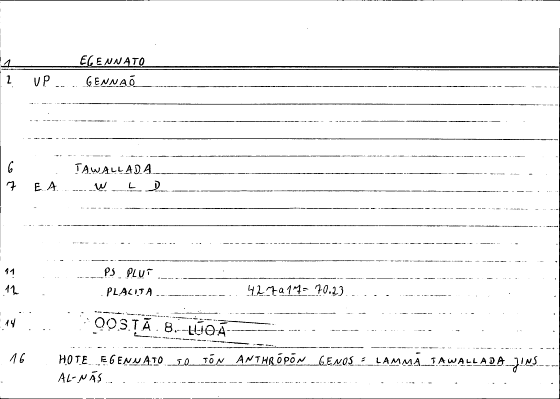 1 EGENNATO
2 VP GENNAŌ
6 TAWALLADA
7 E A W L D
11 PS PLUT
12 PLACITA 427a17= 70.23
14 QOSṬĀ B. LŪQĀ
16 HOTE EGENNATO TO TŌN ANTHRŌPŌN GENOS = LAMMĀ TAWALLADA JINS
AL-NĀS